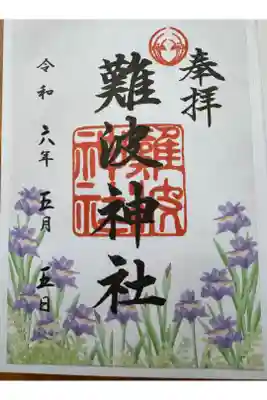 奉拝
難波神社
令和六年五月五日
難波神社